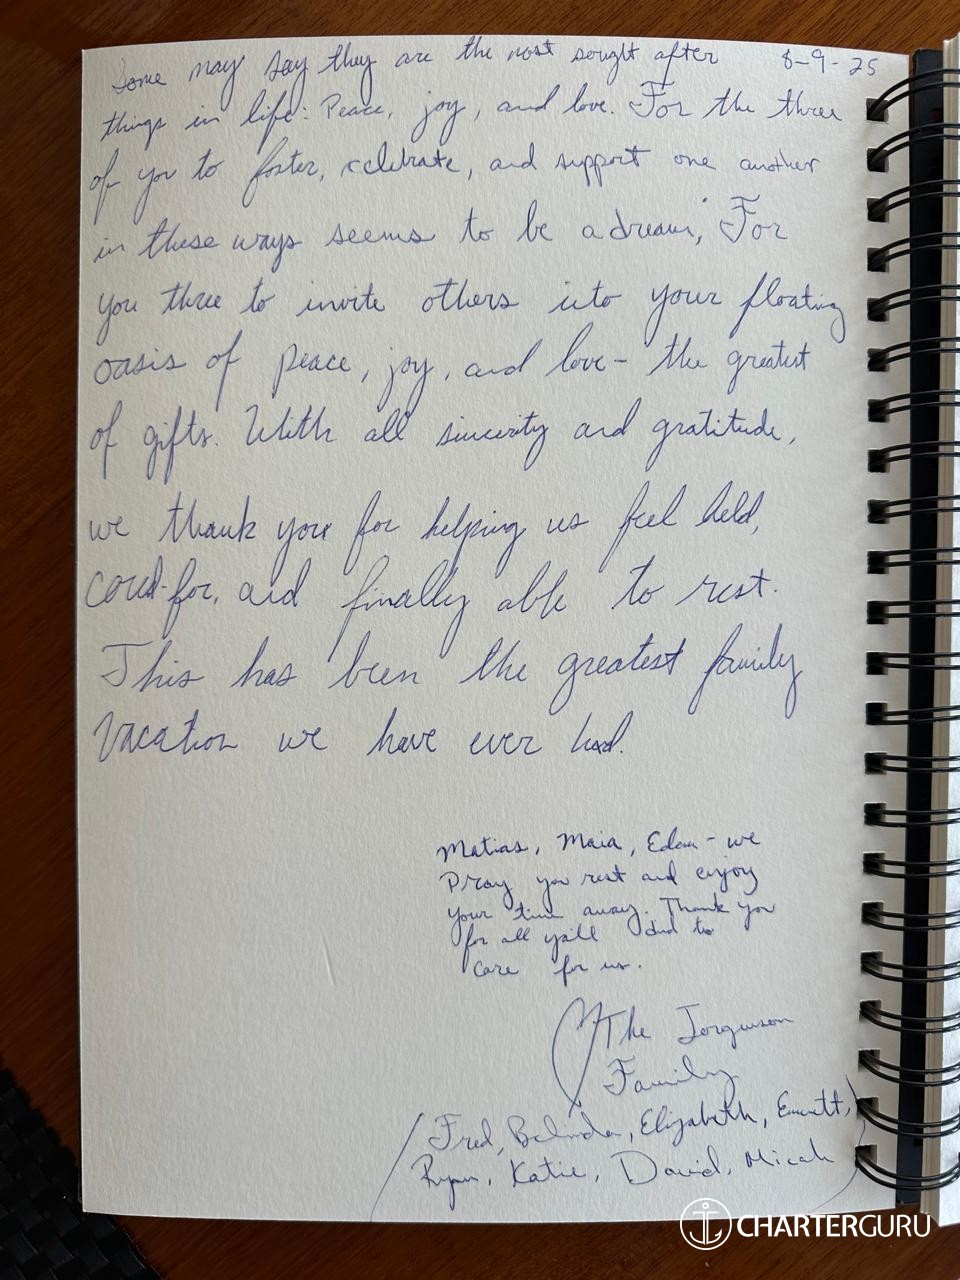 Some may say they are the most sought after 8-9-25
things in life: Peace, joy, and love. For the three
of you to foster, celebrate, and support one another
in these ways seems to be a dream; For
you three to invite others into your floating
oasis of peace, joy, and love- the greatest
of gifts. With all sincerity and gratitude,
we thank you for helping us feel held,
cared-for, and finally able to rest.
This has been the greatest family
vacation we have ever had.
Matias, Maia, Edam - we
Pray you rest and enjoy
your time away. Thank you
for all yall did to
care for us.
The Jorgenson
Family
(Fred, Belinda, Elizabeth, Emmett,
Ryan, Katie, David, Micah)
CHARTERGURU